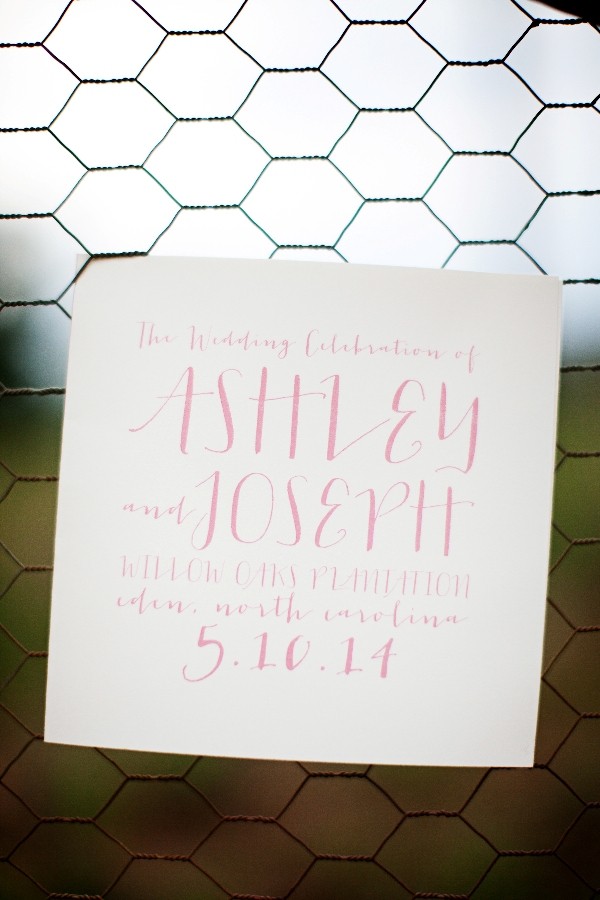 The Wedding Celebration of
ASHLEY
and JOSEPH
WILLOW OAKS PLANTATION
eden, north carolina
5.10.14